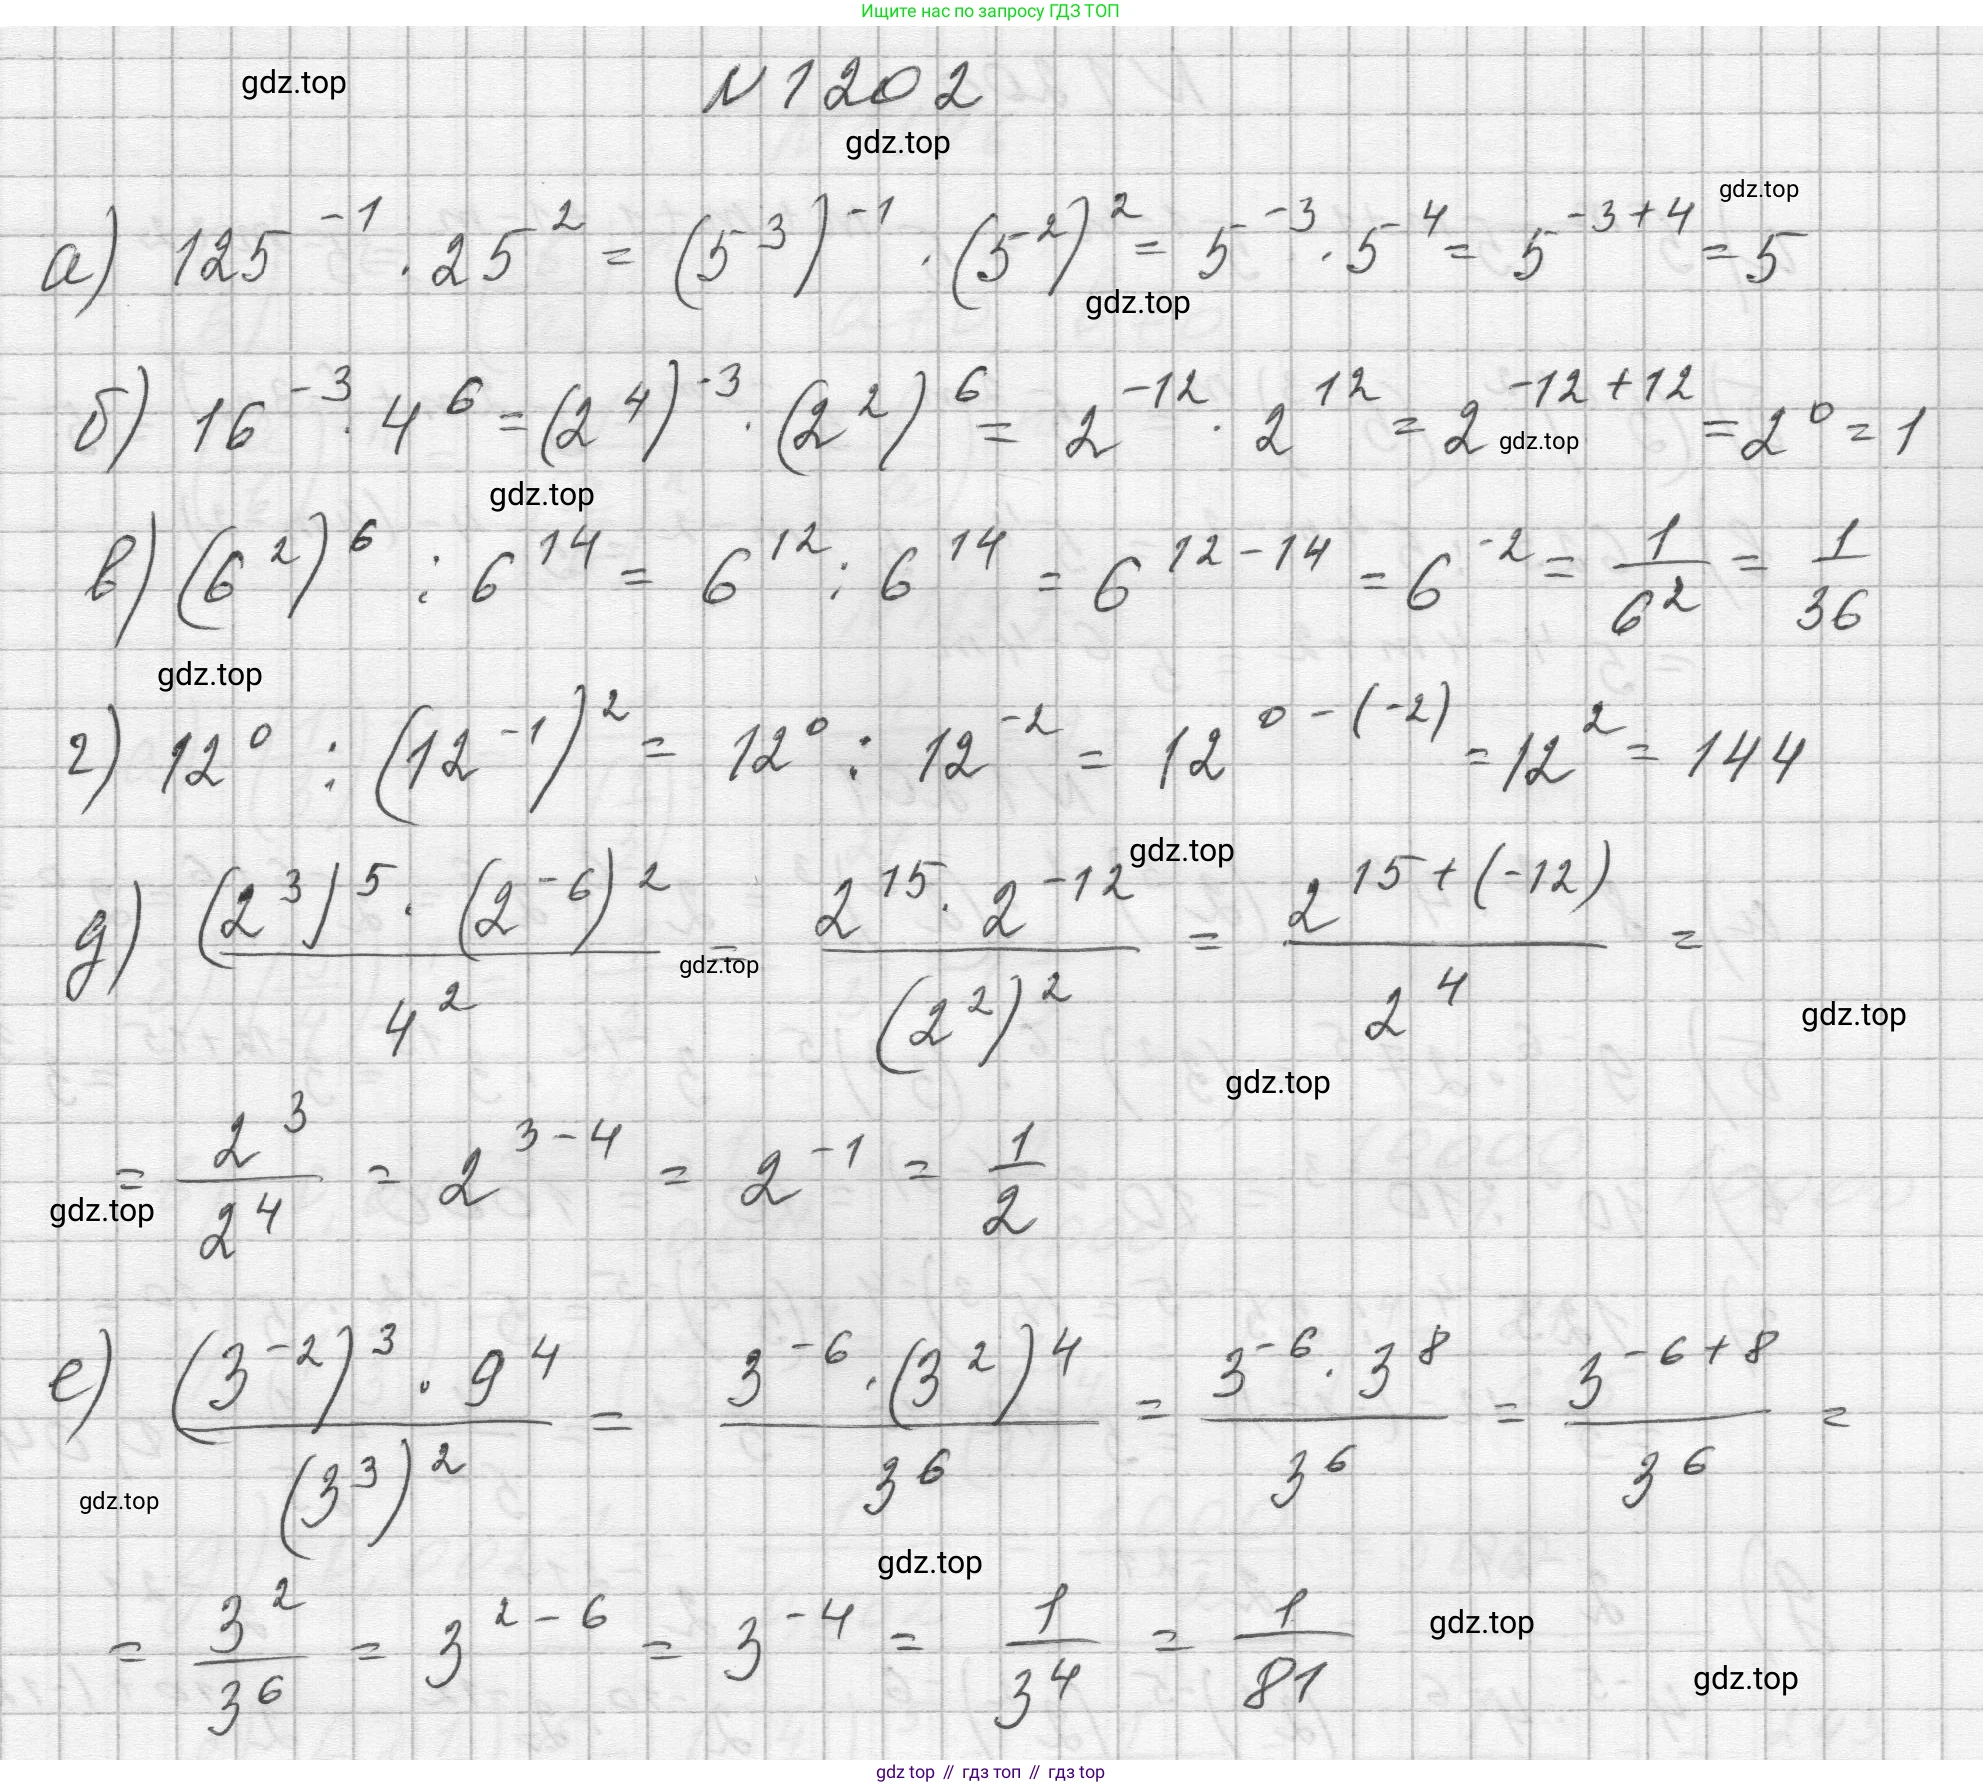 Ищите нас по запросу ГДЗ ТОП
gdz.top
N 1202
gdz.top
gdz.top
а) 125⁻¹ · 25² = (5³)⁻¹ · (5²)² = 5⁻³ · 5⁴ = 5⁻³⁺⁴ = 5
gdz.top
б) 16⁻³ · 4⁶ = (2⁴)⁻³ · (2²)⁶ = 2⁻¹² · 2¹² = 2⁻¹²⁺¹² = 2⁰ = 1
gdz.top
gdz.top
в) (6²)⁶ : 6¹⁴ = 6¹² : 6¹⁴ = 6¹²⁻¹⁴ = 6⁻² = 1/6² = 1/36
gdz.top
г) 12⁰ : (12⁻¹)² = 12⁰ : 12⁻² = 12⁰⁻⁽⁻²⁾ = 12² = 144
gdz.top
д) ((2³)⁵ · (2⁻⁶)²)/4² = (2¹⁵ · 2⁻¹²)/(2²)² = 2¹⁵⁺⁽⁻¹²⁾/2⁴ =
gdz.top
gdz.top
gdz.top
= 2³/2⁴ = 2³⁻⁴ = 2⁻¹ = 1/2
gdz.top
е) ((3⁻²)³ · 9⁴)/(3³)² = (3⁻⁶ · (3²)⁴)/3⁶ = (3⁻⁶ · 3⁸)/3⁶ = 3⁻⁶⁺⁸/3⁶ =
gdz.top
gdz.top
= 3²/3⁶ = 3²⁻⁶ = 3⁻⁴ = 1/3⁴ = 1/81
gdz.top
gdz.top
gdz top // гдз топ // гдз top